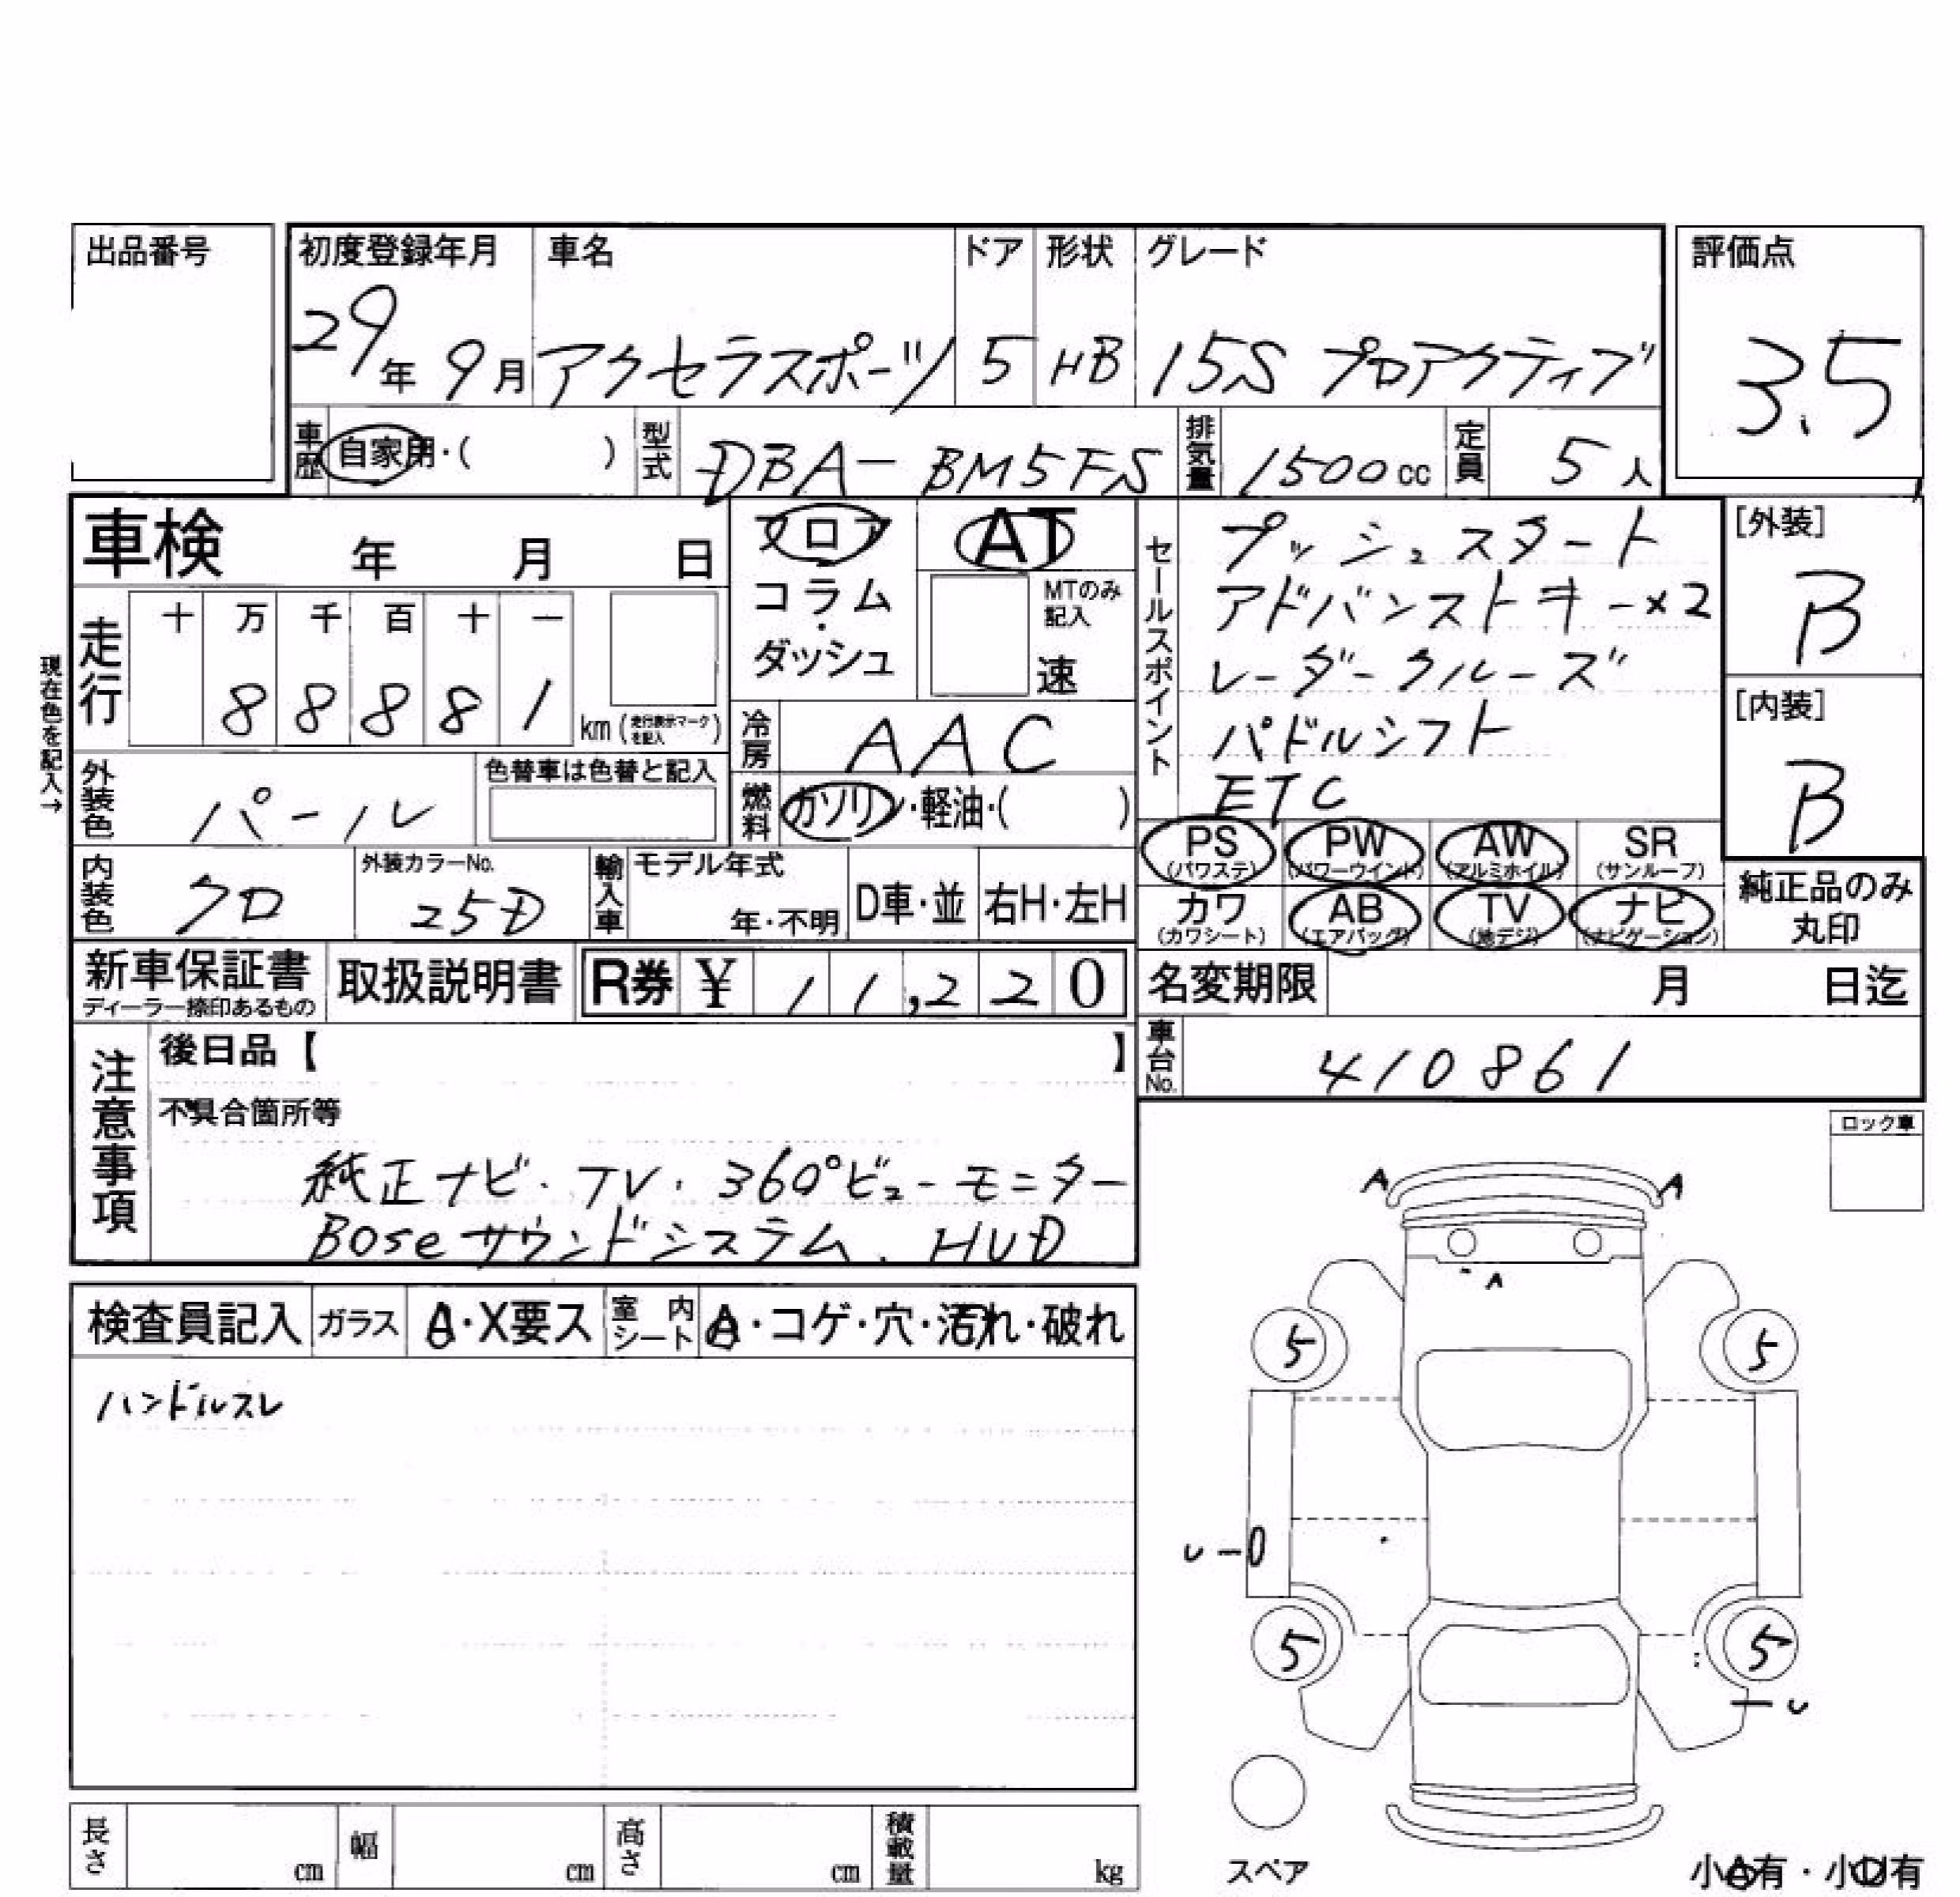 出品番号
初度登録年月 車名 ドア 形状 グレード 評価点
29年 9月 アクセラスポーツ 5 HB 15S プロアクティブ 3.5
車歴 自家用・( ) 型式 DBA-BM5FS 排気量 1500cc 定員 5人
車検 年 月 日
フロア
コラム
・
ダッシュ
AT
MTのみ記入
速
走行 十 万 千 百 十 一
8 8 8 8 1 km (走行表示マークを記入)
現在色を記入→
冷房 AAC
外装色 パール 色替車は色替と記入
燃料 ガソリン・軽油・( )
内装色 クロ 外装カラーNo. 25D
輸入車 モデル年式 年・不明 D車・並 右H・左H
セールスポイント
プッシュスタート
アドバンストキー×2
レーダークルーズ
パドルシフト
ETC
[外装]
B
[内装]
B
PS (パワステ) PW (パワーウインド) AW (アルミホイル) SR (サンルーフ)
カワ (カワシート) AB (エアバッグ) TV (地デジ) ナビ (ナビゲーション)
純正品のみ
丸印
新車保証書 取扱説明書 R券 ¥ 11,220
ディーラー捺印あるもの
名変期限 月 日迄
車台No. 410861
注意事項
後日品【 】
不具合箇所等
純正ナビ・TV・360°ビューモニター
Boseサウンドシステム、HUD
ロック車
検査員記入 ガラス A・X要ス 室内シート A・コゲ・穴・汚れ・破れ
ハンドルスレ
A A
A
5 5
5 5
スペア
長さ cm 幅 cm 高さ cm 積載量 kg
小A有・小U有